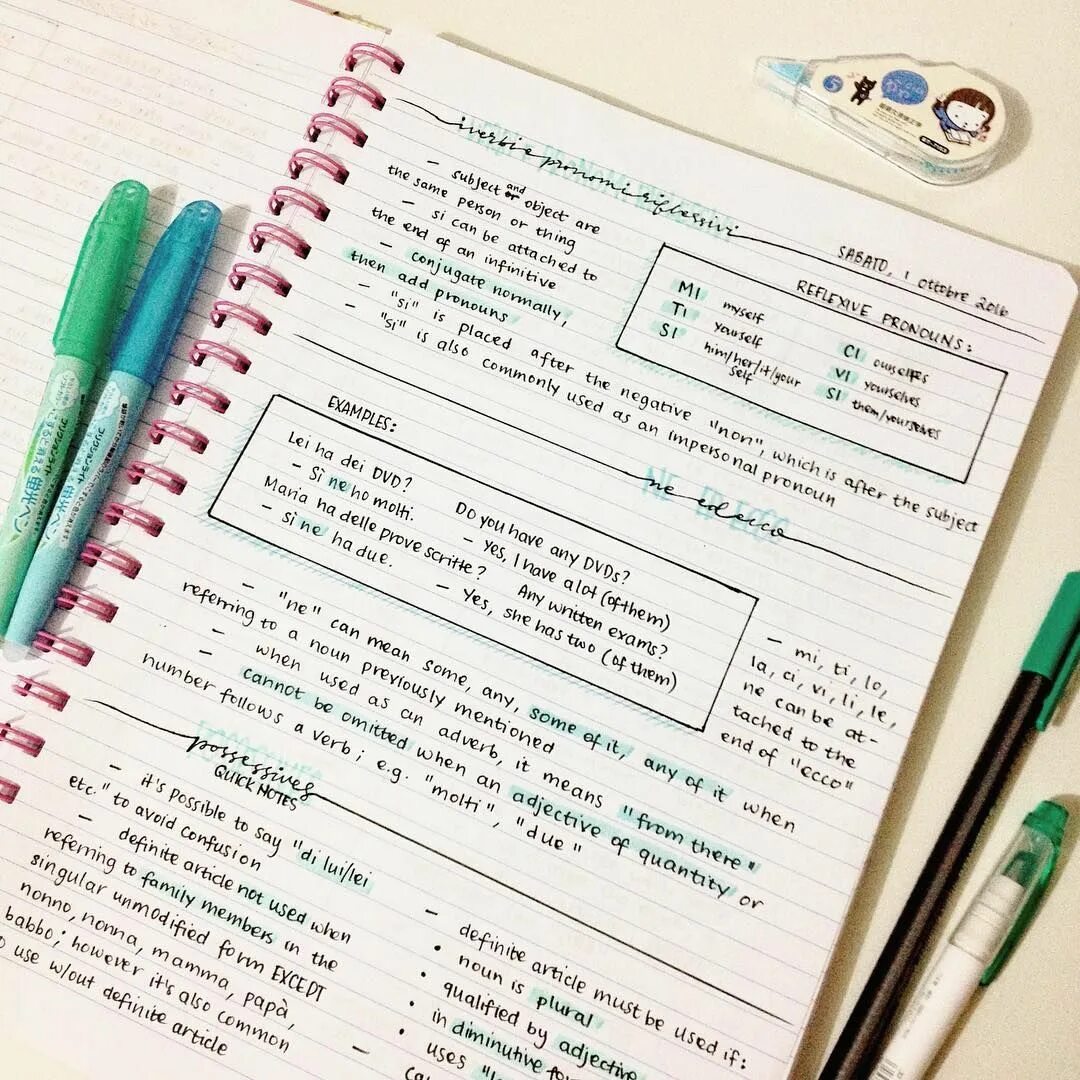 i verbi e pronomi riflessivi
SABATO, 1 ottobre 2016
— subject and object are
the same person or thing
— si can be attached to
the end of an infinitive
— conjugate normally,
then add pronouns
— "si" is placed after the negative "non", which is after the subject
— "si" is also commonly used as an impersonal pronoun
REFLEXIVE PRONOUNS:
MI myself
TI yourself
SI him/her/it/your
self
CI ourselves
VI yourselves
SI them/yourselves
ne ed ecco
EXAMPLES:
Lei ha dei DVD? Do you have any DVDs?
— Sì ne ho molti. — Yes, I have a lot (of them)
Maria ha delle prove scritte? Any written exams?
— Sì ne ha due. — Yes, she has two (of them)
— mi, ti, lo,
la, ci, vi, li, le,
ne can be at-
tached to the
end of "ecco"
— "ne" can mean some, any, some of it, any of it when
referring to a noun previously mentioned
— when used as an adverb, it means "from there"
— cannot be omitted when an adjective of quantity or
number follows a verb; e.g. "molti", "due"
possessives
QUICK NOTES
— it's possible to say "di lui/lei
etc." to avoid confusion
— definite article not used when
referring to family members in the
singular unmodified form EXCEPT
nonno, nonna, mamma, papà,
babbo; however it's also common
use w/out definite article
— definite article must be used if:
• noun is plural
• qualified by adjective
• in diminutive
• uses
5